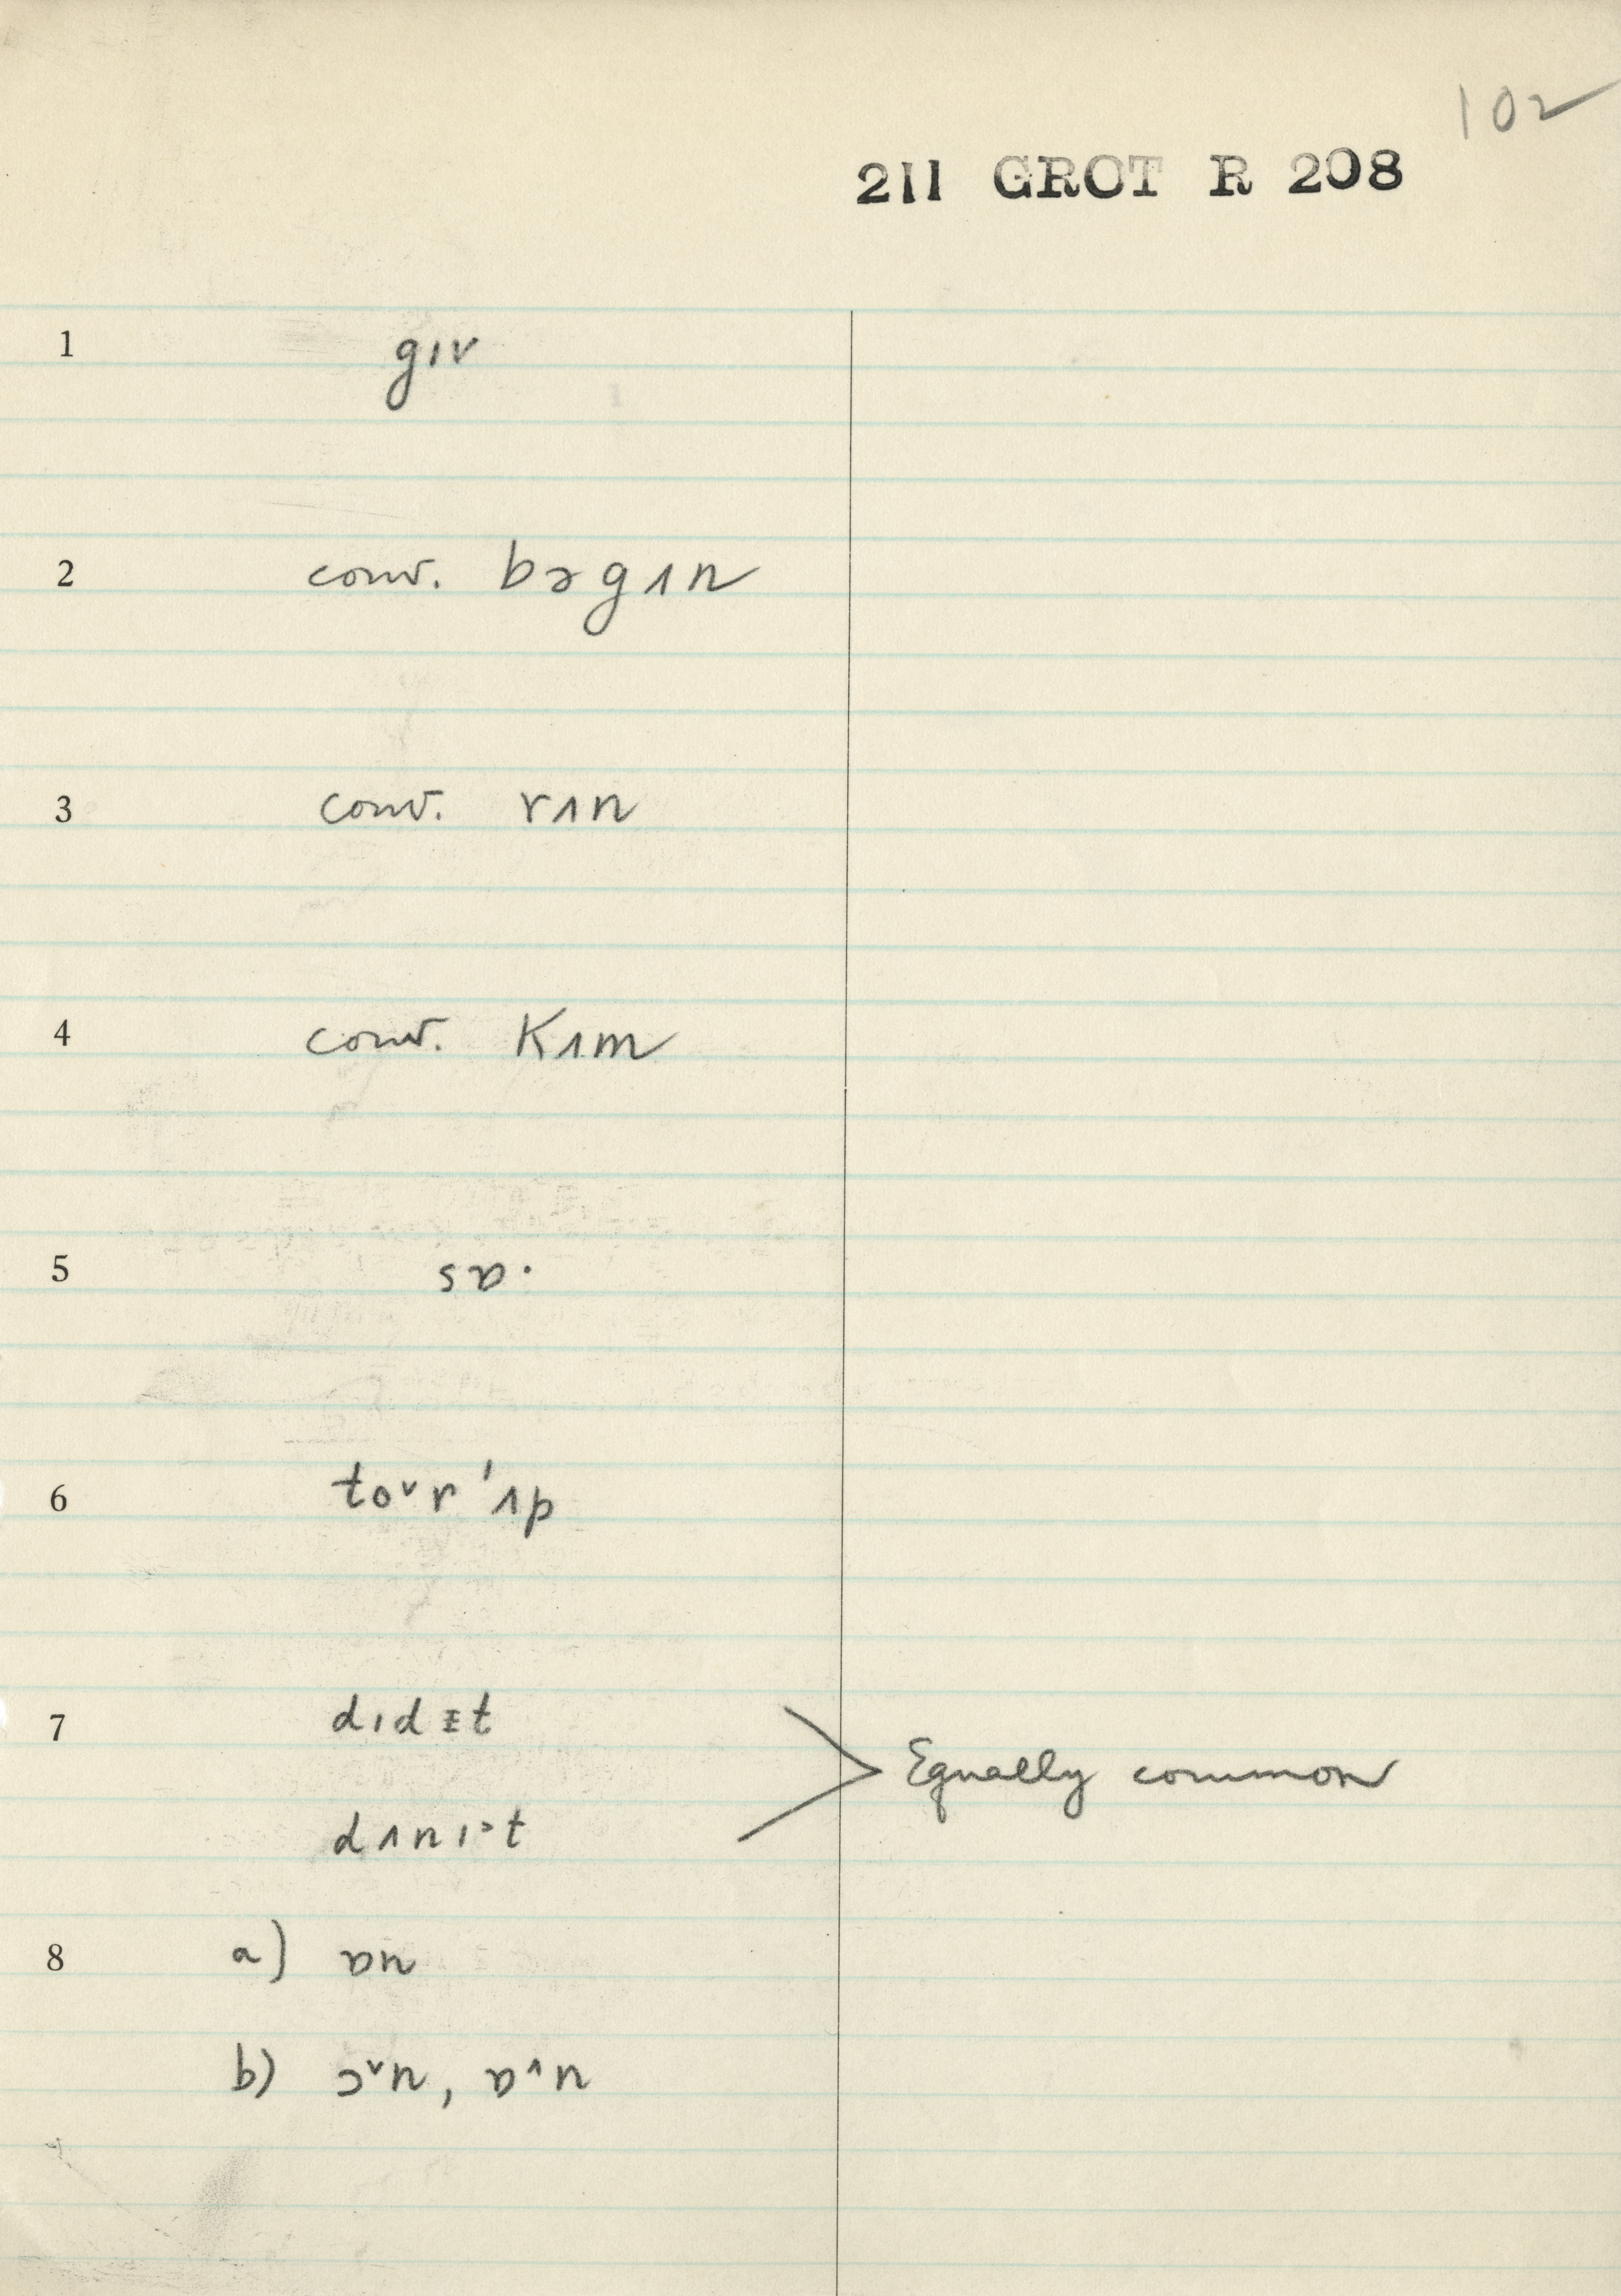 102
211 GROT R 208
1 gɪv
2 conv. bəgʌn
3 conv. rʌn
4 conv. kʌm
5 sɒ·
6 toᵛr 'ʌp
7 dɪdɪt
dʌnɪ·t
Equally common
8 a) ɒn
b) ɔᵛn, ɒ^n